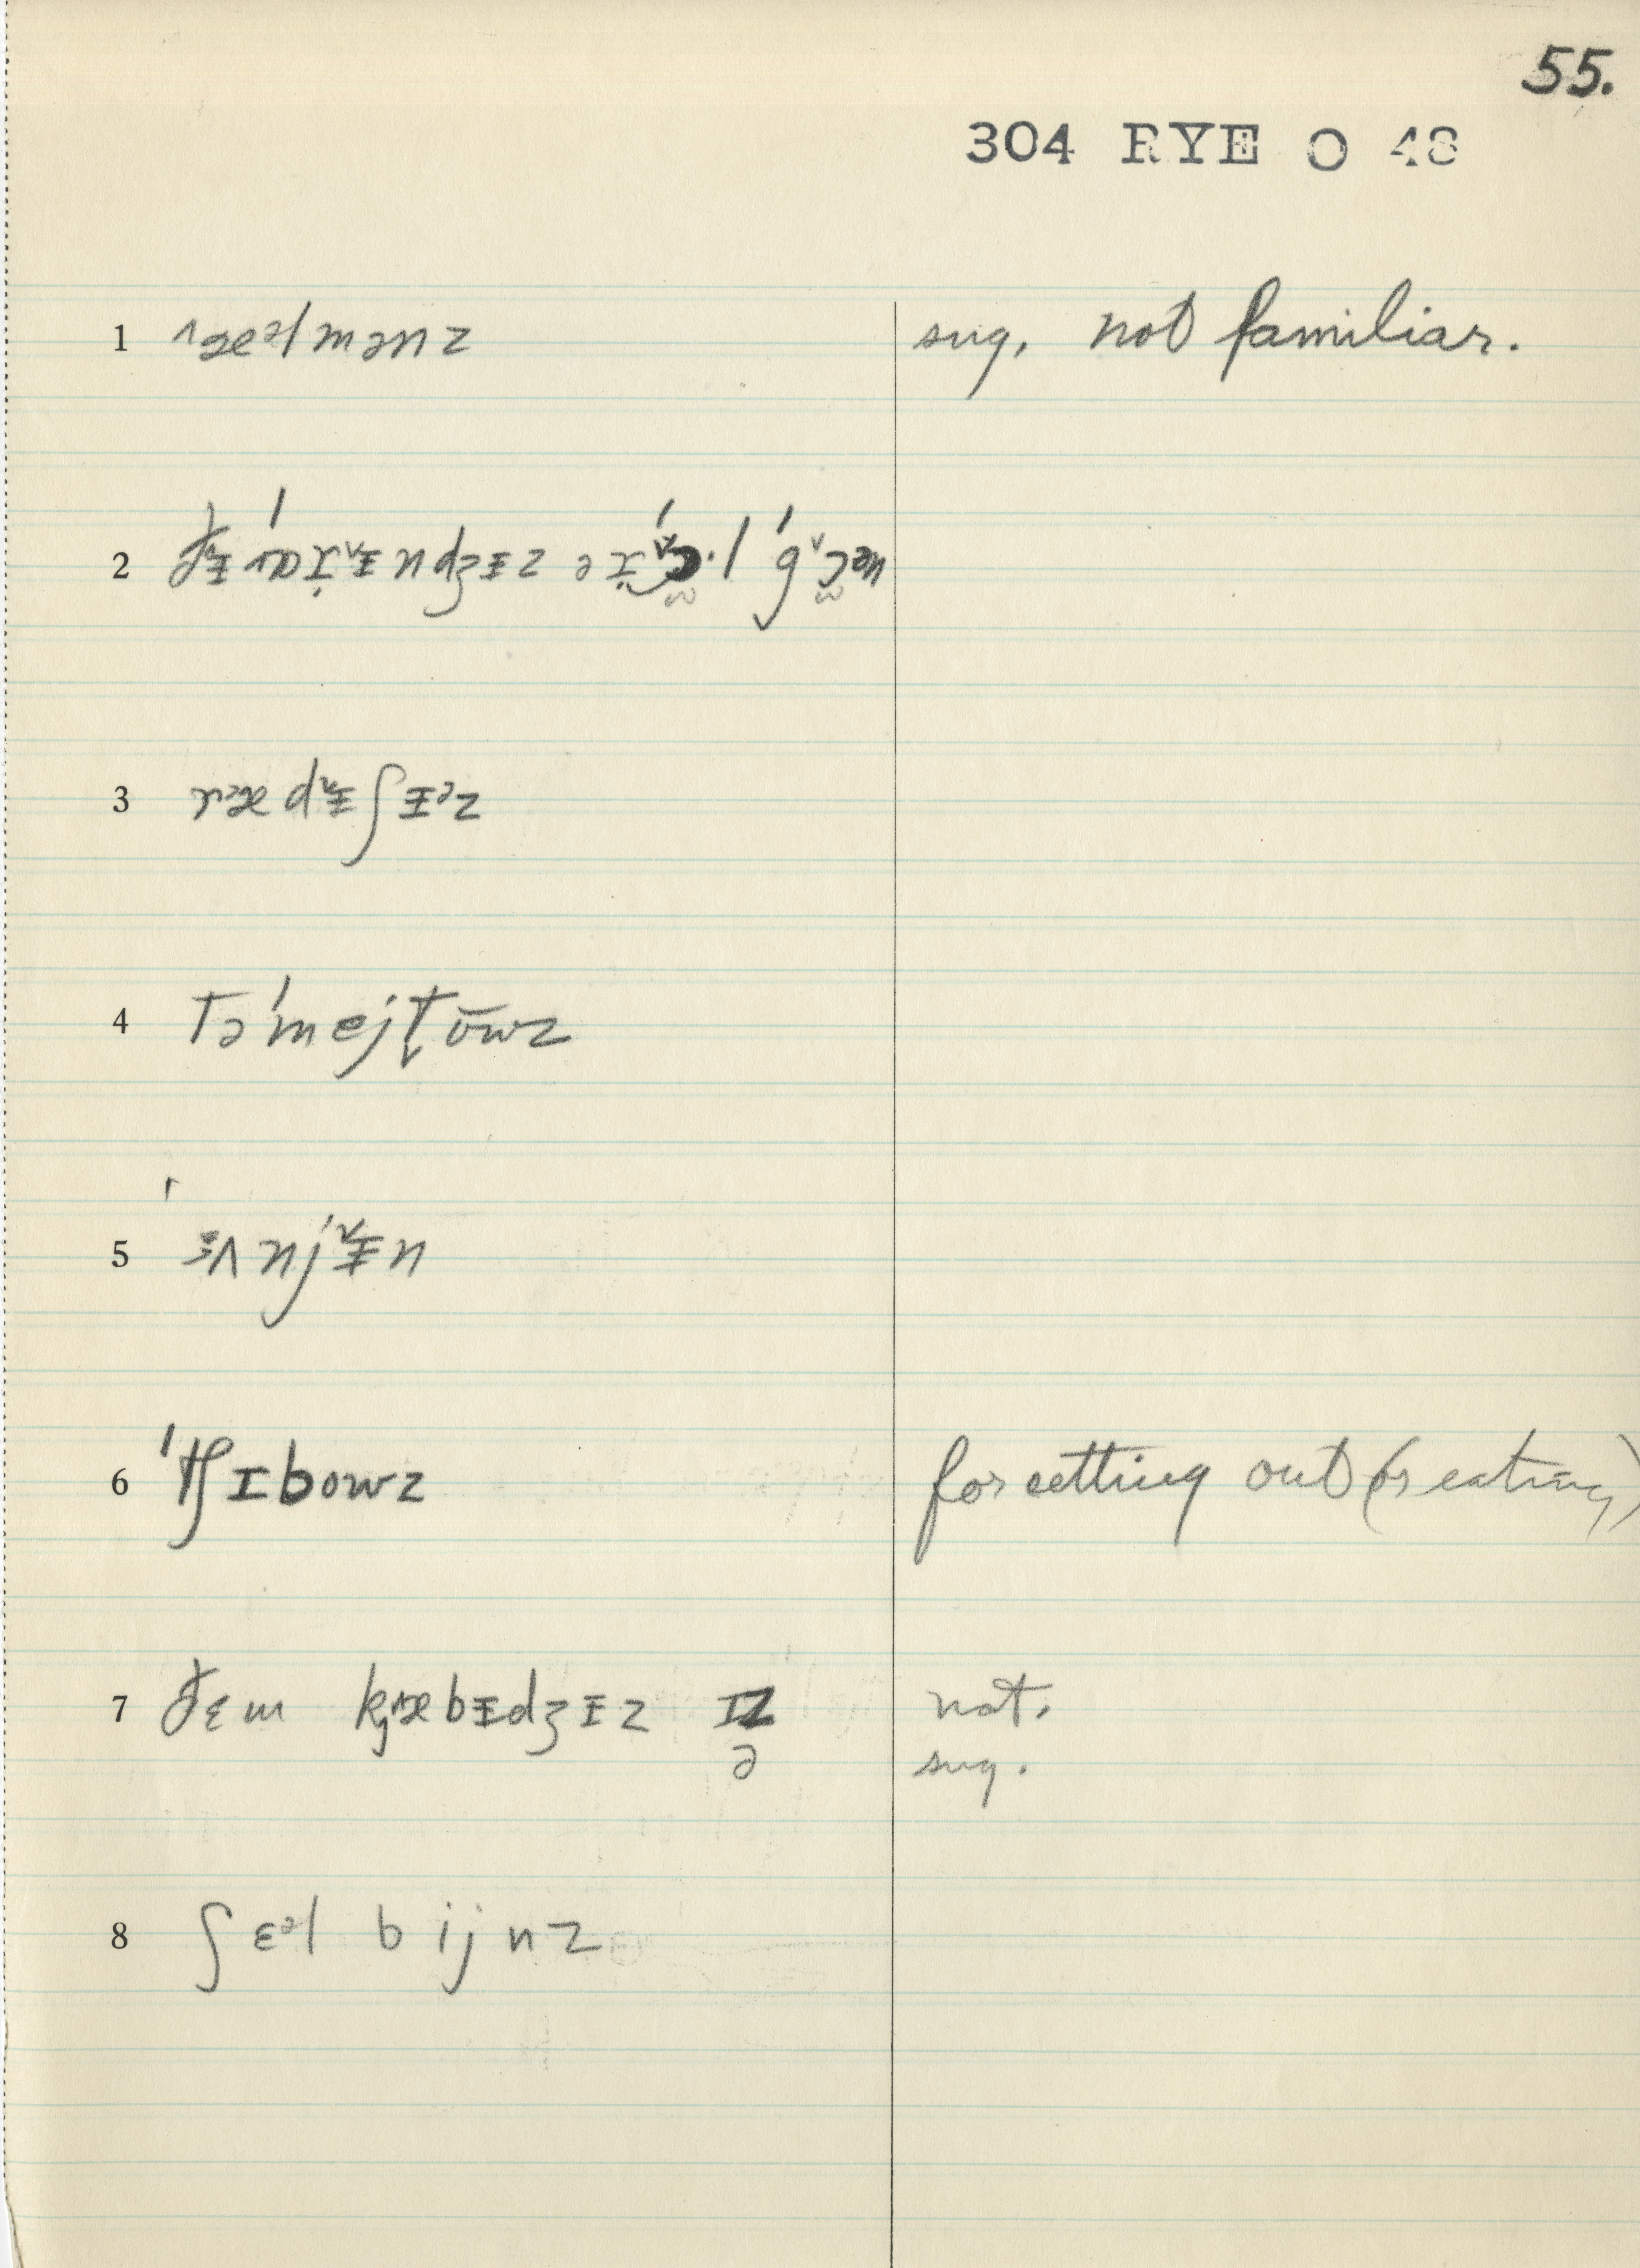 55.
304 RYE O 48
1 ^æᵊlmənz sug. not familiar.
2
3 rᵊæd˅ᵻʃᵻᵊz
4 təˈmejt̬ōwz
5 ʌnj˅ᵻn
6 ˈtʃɪbowz for setting out (or eating)
7 ðɛm kæbᵻdʒᵻz ɪz nat.
ə sug.
8 ʃɛᵊl bijnz